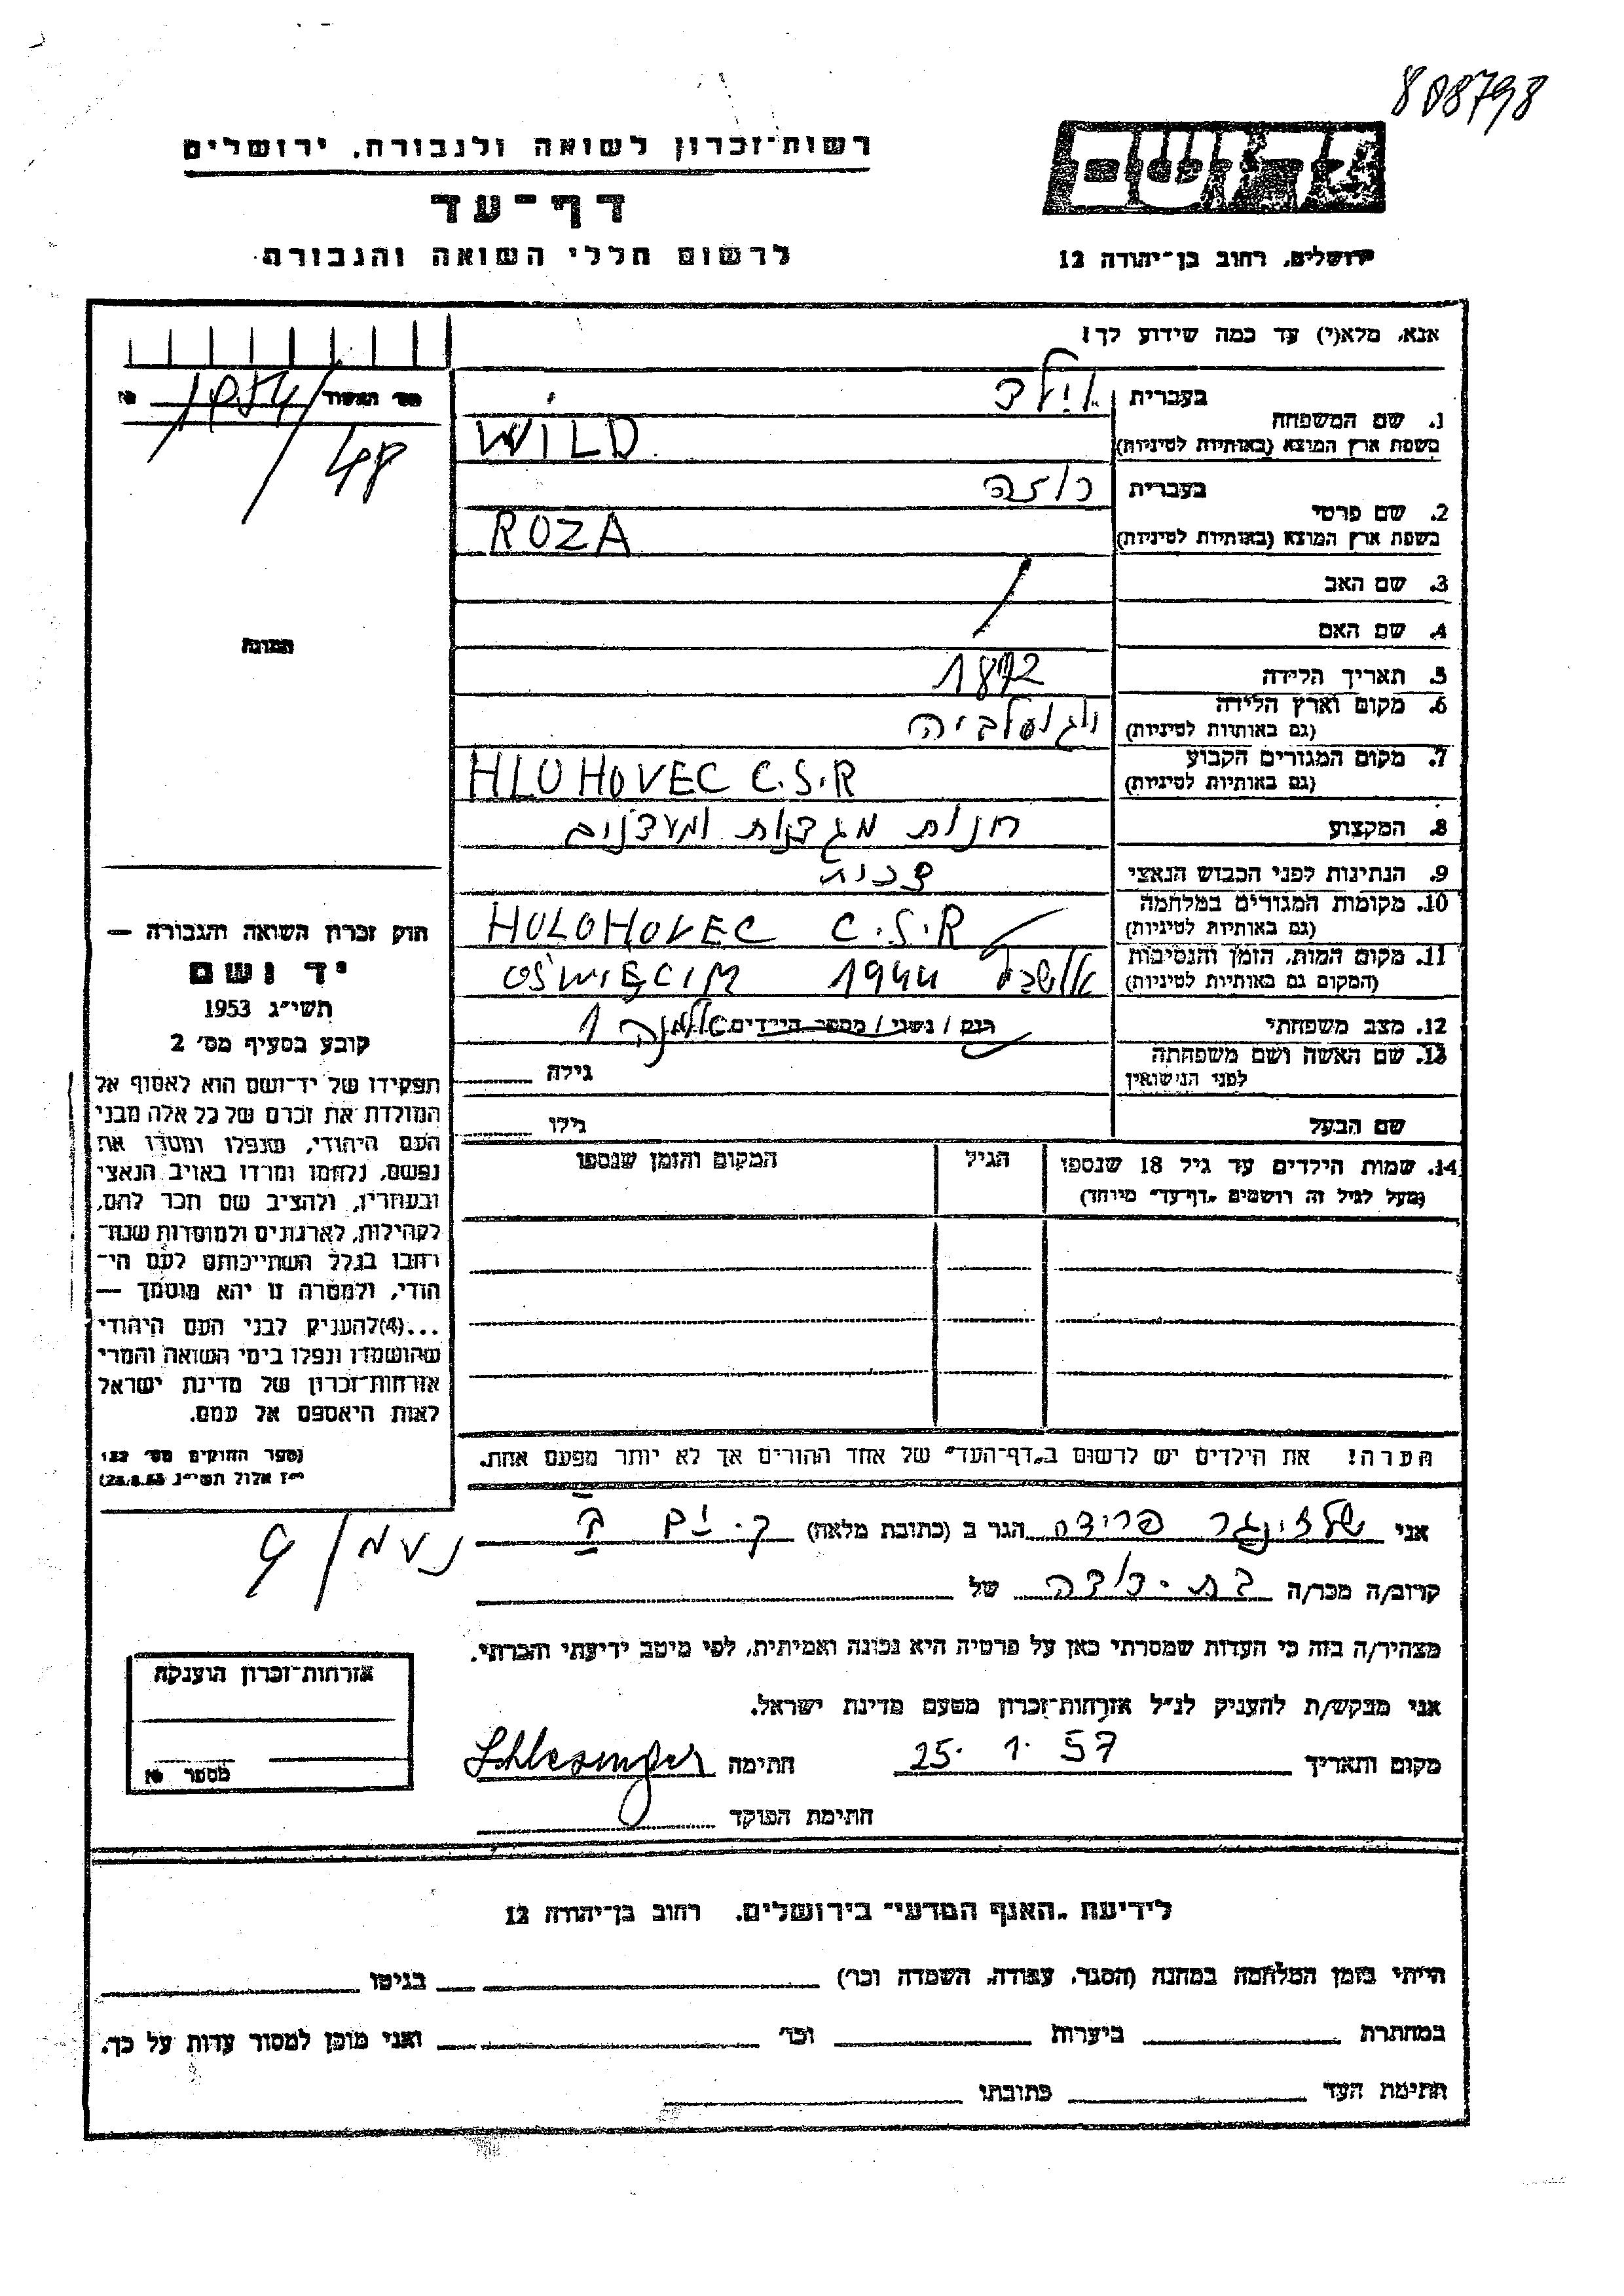 808798
רשות-זכרון לשואה ולגבורה, ירושלים
דף-עד
לרשום חללי השואה והגבורה
ירושלים, רחוב בן-יהודה 12
אנא, מלא(י) עד כמה שידוע לך!
1. שם המשפחה
בעברית ווילד
בשפת ארץ המוצא (באותיות לטיניות) WILD
2. שם פרטי
בעברית רוזה
בשפת ארץ המוצא (באותיות לטיניות) ROZA
3. שם האב
4. שם האם
5. תאריך הלידה 1872
6. מקום וארץ הלידה
(גם באותיות לטיניות)
7. מקום המגורים הקבוע HLOHOVEC C.S.R
(גם באותיות לטיניות)
8. המקצוע חנות מגדנות ומעדנים
9. הנתינות לפני הכבוש הנאצי צכית
10. מקומות המגורים במלחמה HOLOHOVEC C.S.R
(גם באותיות לטיניות)
11. מקום המות, הזמן והנסיבות OŚWIĘCIM 1944
(המקום גם באותיות לטיניות)
12. מצב משפחתי רוק / נשוי / מספר הילדים אלמנה 1
13. שם האשה ושם משפחתה
לפני הנישואין
גילה
שם הבעל
גילו
14. שמות הילדים עד גיל 18 שנספו
(מעל לגיל זה רושמים "דף-עד" מיוחד)
הגיל
המקום והזמן שנספו
הערה! את הילדים יש לרשום ב"דף-העד" של אחד ההורים אך לא יותר מפעם אחת.
מס' האשור 1054/
48
תמונה
חוק זכרון השואה והגבורה —
יד ושם
תשי"ג 1953
קובע בסעיף מס' 2
תפקידו של יד-ושם הוא לאסוף אל
המולדת את זכרם של כל אלה מבני
העם היהודי, שנפלו ומסרו את
נפשם, נלחמו ומרדו באויב הנאצי
ובעוזריו, ולהציב שם וזכר להם,
לקהילות, לארגונים ולמוסדות שנח-
רבו בגלל השתייכותם לעם הי-
הודי, ולמטרה זו יהא מוסמך —
...(4) להעניק לבני העם היהודי
שהושמדו ונפלו בימי השואה והמרי
אזרחות-זכרון של מדינת ישראל
לאות היאספם אל עמם.
(ספר החוקים מס' 132
י"ז אלול תשי"ג 28.8.53)
אני שלזינגר פרידה הגר ב (כתובת מלאה) ק. ים ב'
קרוב/ה מכר/ה בת-דודה של
מצהיר/ה בזה כי העדות שמסרתי כאן על פרטיה היא נכונה ואמיתית, לפי מיטב ידיעתי והכרתי.
אני מבקש/ת להעניק לנ"ל אזרחות-זכרון מטעם מדינת ישראל.
מקום ותאריך 25. 1. 57 חתימה Schlesinger
חתימת הפוקד
אזרחות-זכרון הוענקה
מספר
לידיעת "האגף המדעי" בירושלים, רחוב בן-יהודה 12
הייתי בזמן המלחמה במחנה (הסגר, עבודה, השמדה וכו') בגיטו
במחתרת ביערות וכו' ואני מוכן למסור עדות על כך.
חתימת העד כתובתו